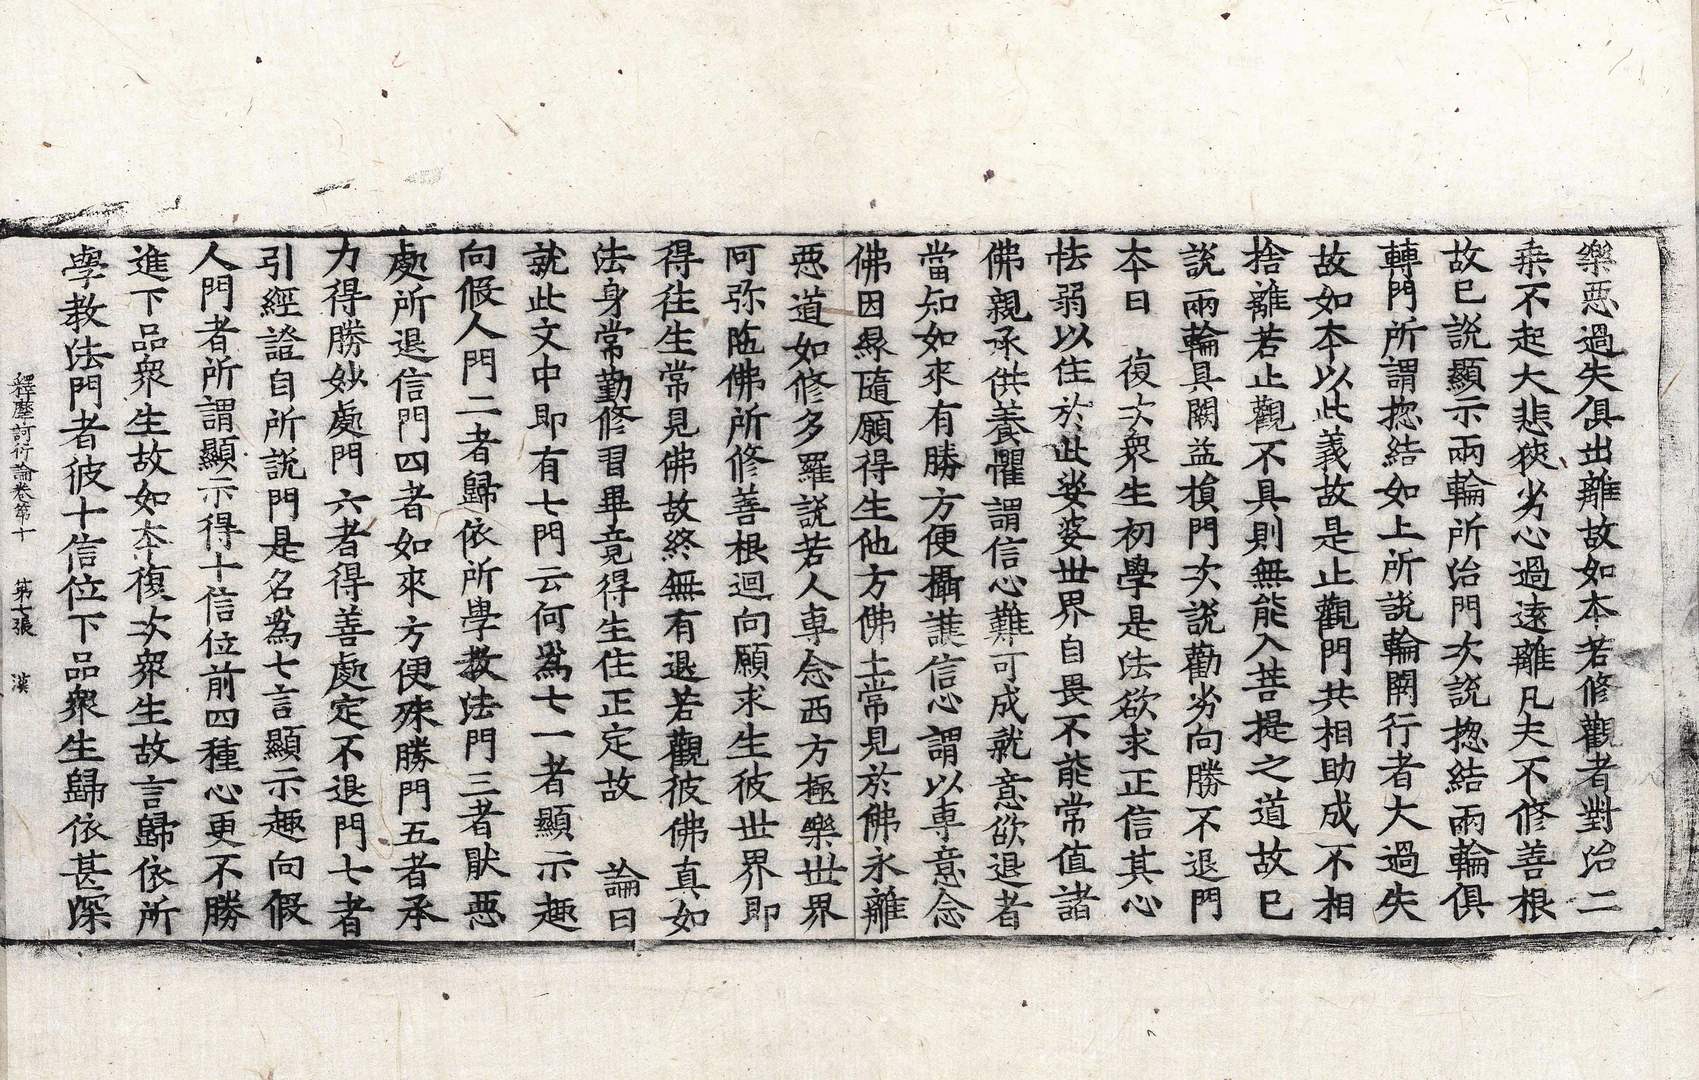 樂惡過失俱出離故如本若修觀者對治二
乘不起大悲狹劣心過遠離凡夫不修善根
故已說顯示兩輪所治門次說揔結兩輪俱
轉門所謂揔結如上所說輪闕行者大過失
故如本以此義故是止觀門共相助成不相
捨離若止觀不具則無能入菩提之道故已
說兩輪具闕益損門次說勸劣向勝不退門
本曰 復次衆生初學是法欲求正信其心
怯弱以住於此娑婆世界自畏不能常值諸
佛親承供養懼謂信心難可成就意欲退者
當知如來有勝方便攝護信心謂以專意念
佛因緣隨願得生他方佛土常見於佛永離
惡道如修多羅說若人專念西方極樂世界
阿弥陁佛所修善根迴向願求生彼世界即
得往生常見佛故終無有退若觀彼佛真如
法身常勤修習畢竟得生住正定故 論曰
就此文中即有七門云何爲七一者顯示趣
向假人門二者歸依所學教法門三者猒惡
處所退信門四者如來方便殊勝門五者承
力得勝妙處門六者得善處定不退門七者
引經證自所說門是名爲七言顯示趣向假
人門者所謂顯示得十信位前四種心更不勝
進下品衆生故如本復次衆生故言歸依所
學教法門者彼十信位下品衆生歸依甚深
釋摩訶衍論卷第十 第七張 漢